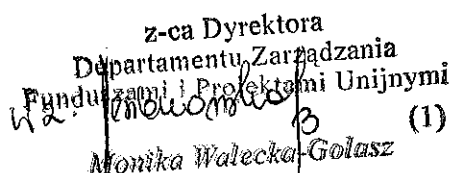 z-ca Dyrektora
Departamentu Zarządzania
Funduszami i Projektami Unijnymi
(1)
Monika Walecka-Gołasz